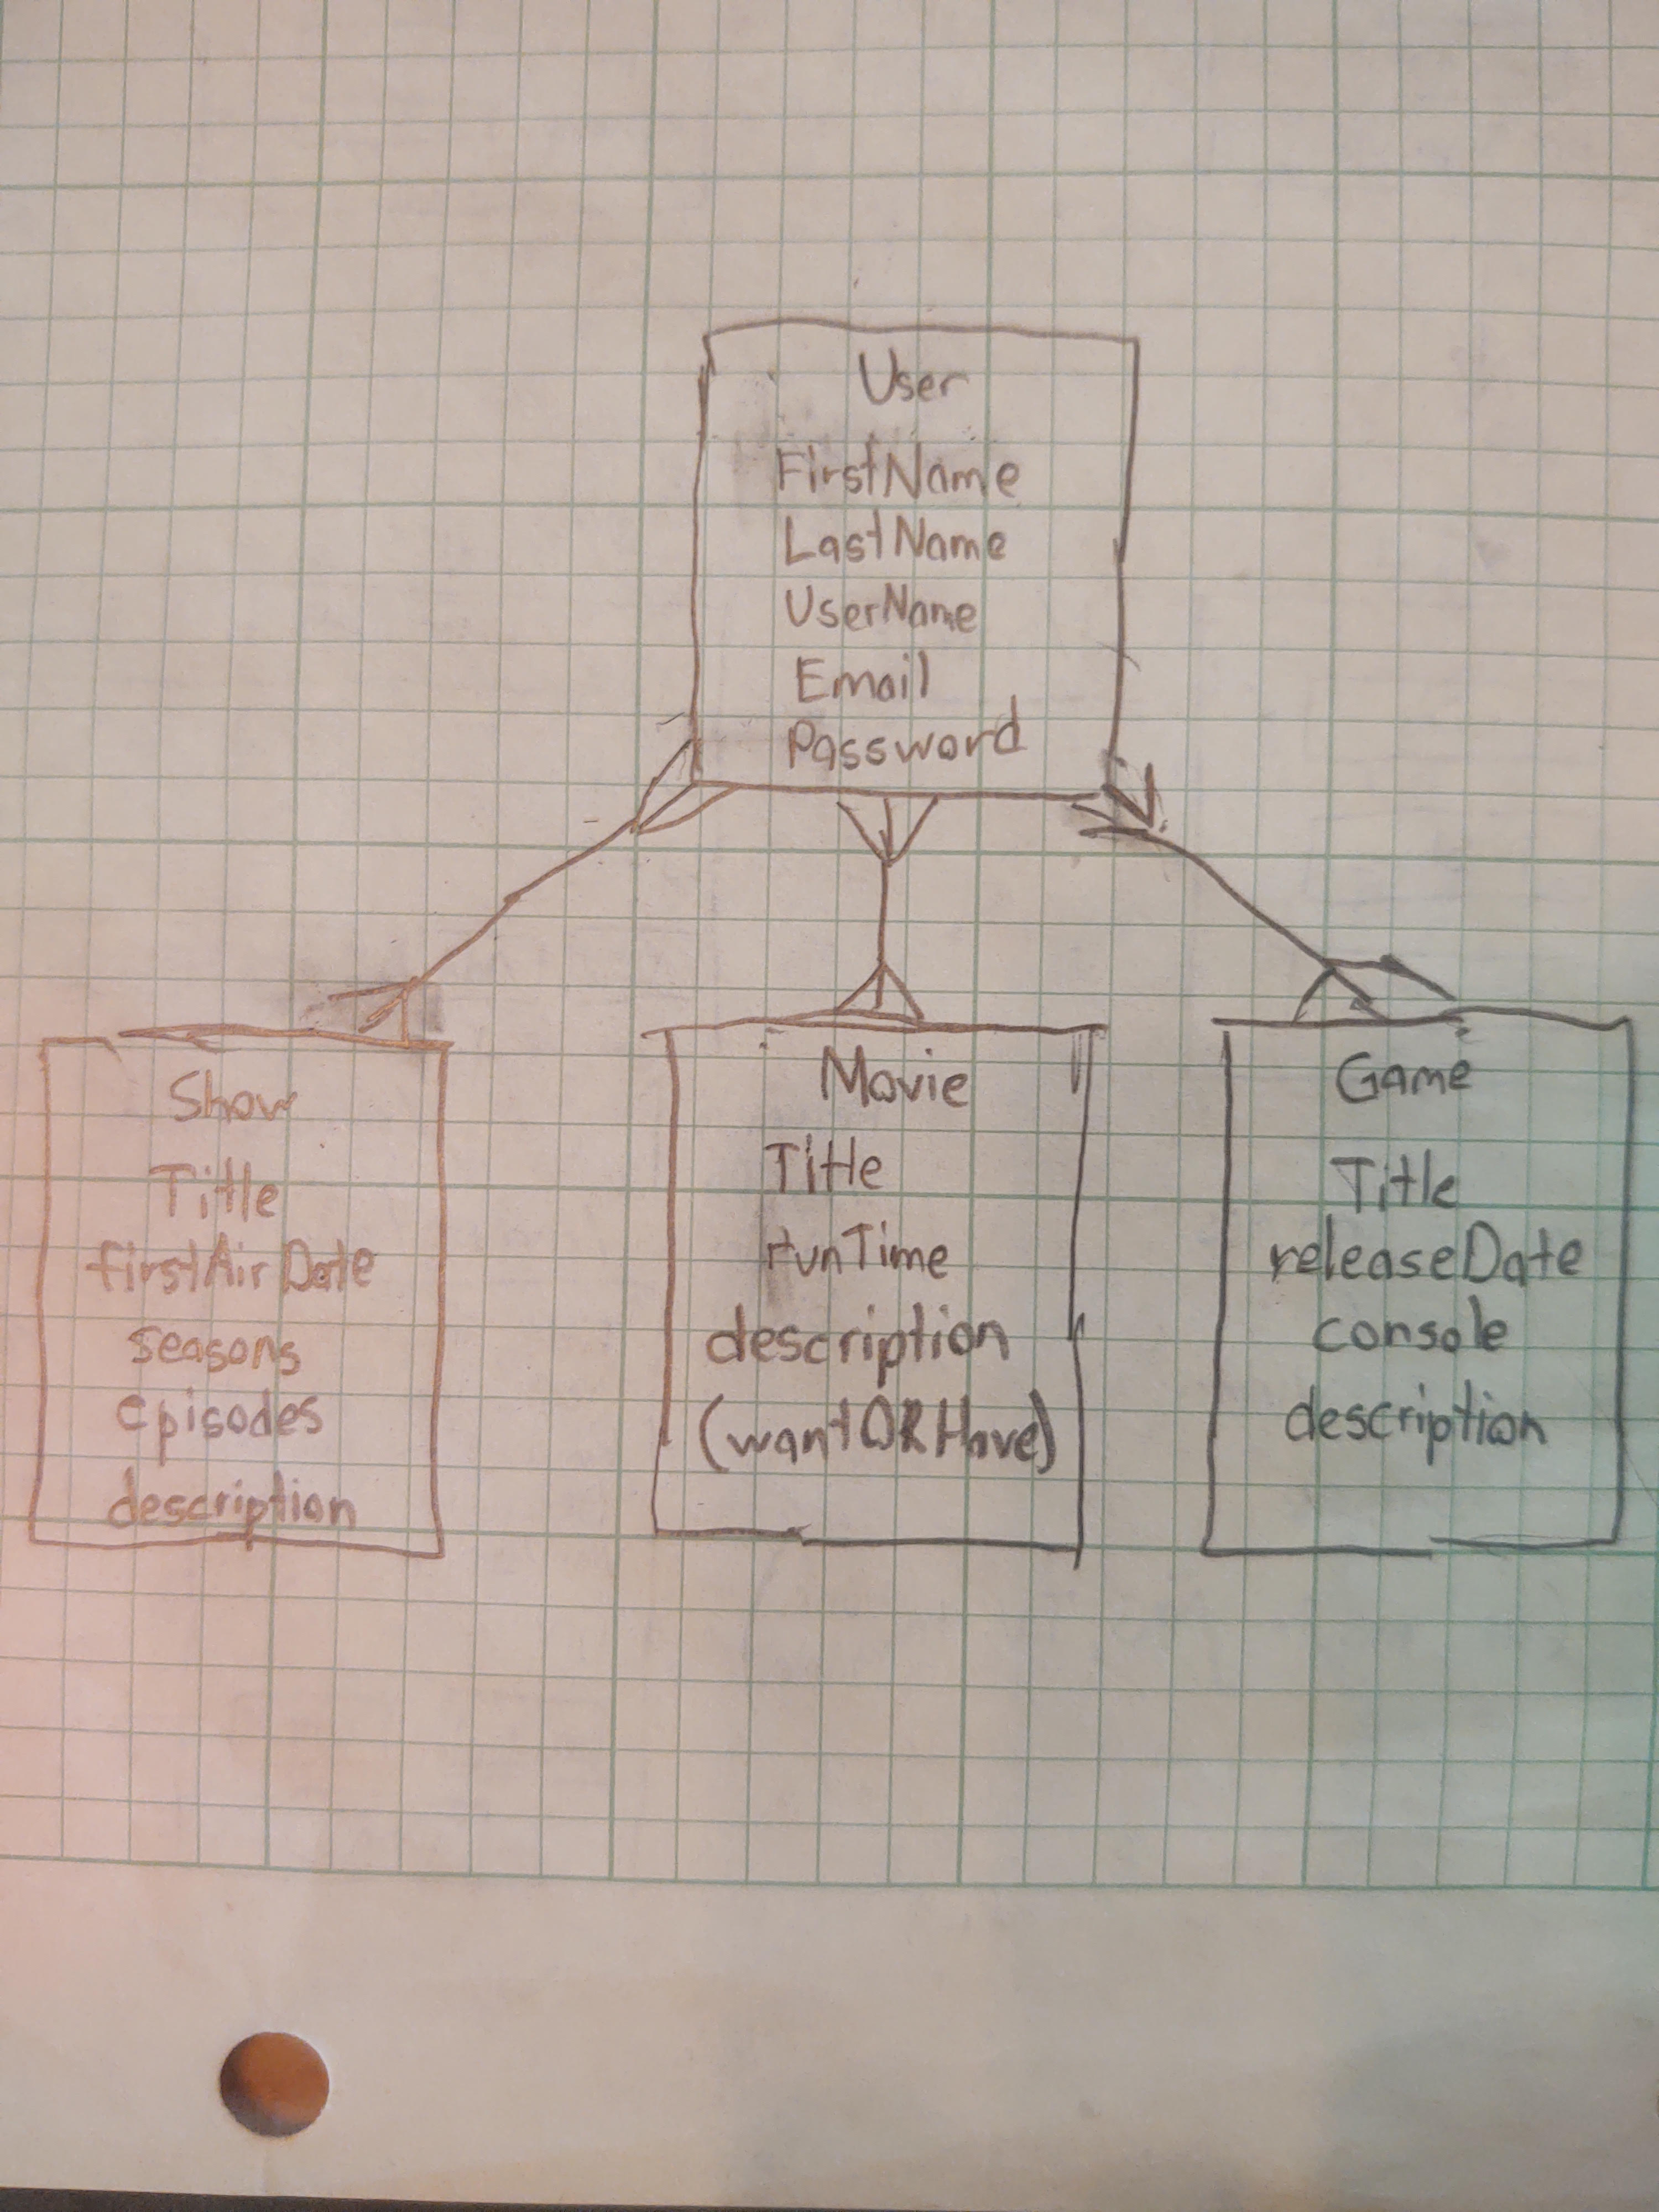 User
FirstName
LastName
UserName
Email
Password
Show
Title
firstAirDate
seasons
episodes
description
Movie
Title
runTime
description
(wantORHave)
Game
Title
releaseDate
console
description